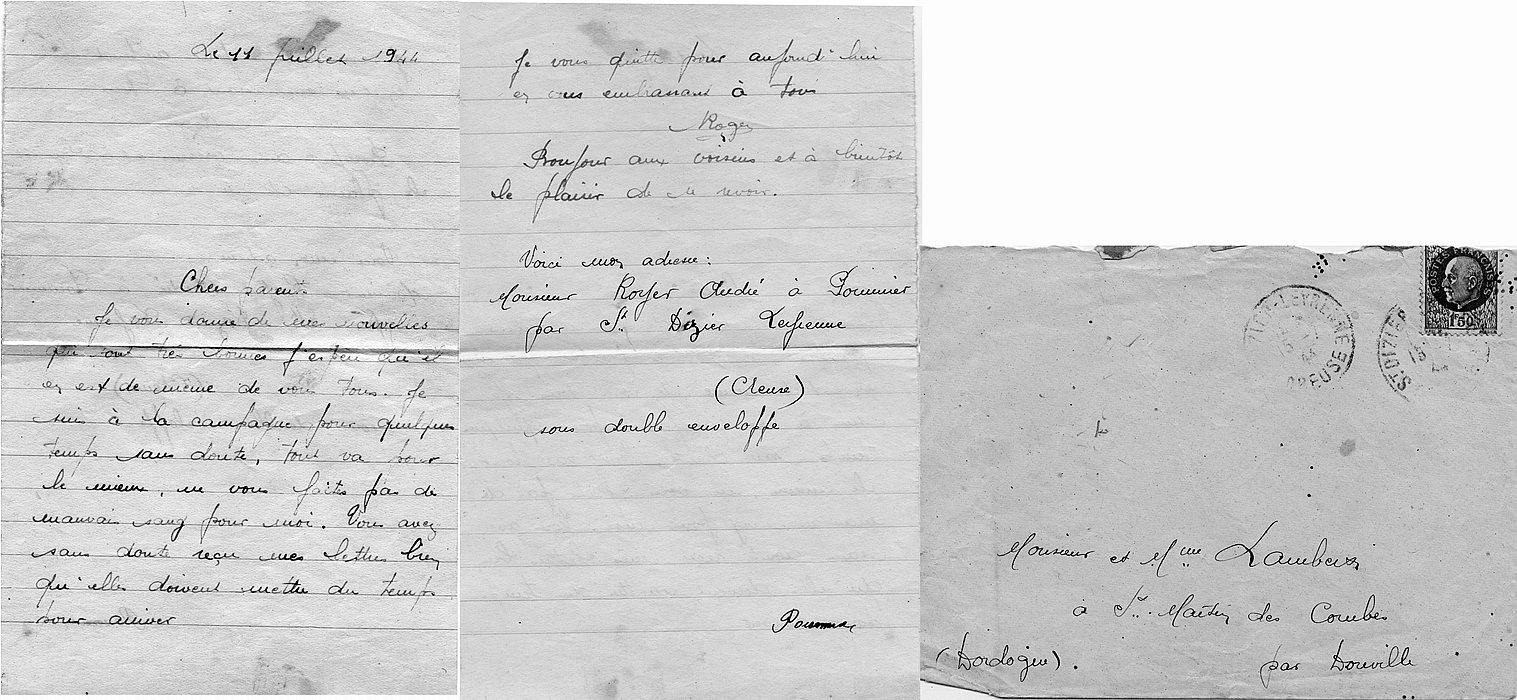 Le 11 juillet 1944
Chers parents
Je vous donne de mes nouvelles
qui sont très bonnes j'espère qu'il
en est de même de vous tous. Je
suis à la campagne pour quelques
temps sans doute, tout va pour
le mieux, ne vous faites pas de
mauvais sang pour moi. Vous avez
sans doute reçu mes lettres bien
qu'elles doivent mettre du temps
pour arriver
Je vous quitte pour aujourd'hui
en vous embrassant à tous
Roger
Bonjour aux voisins et à bientôt
le plaisir de se revoir.
Voici mon adresse:
Monsieur Royer André à Pommier
par St Dizier Leyrenne
(Creuse)
sous double enveloppe
POSTES FRANÇAISES
1F50
ST DIZIER-LEYRENNE
CREUSE
ST DIZIER
Monsieur et Mme
à St. Martin des Combes
par Douville
(Dordogne).